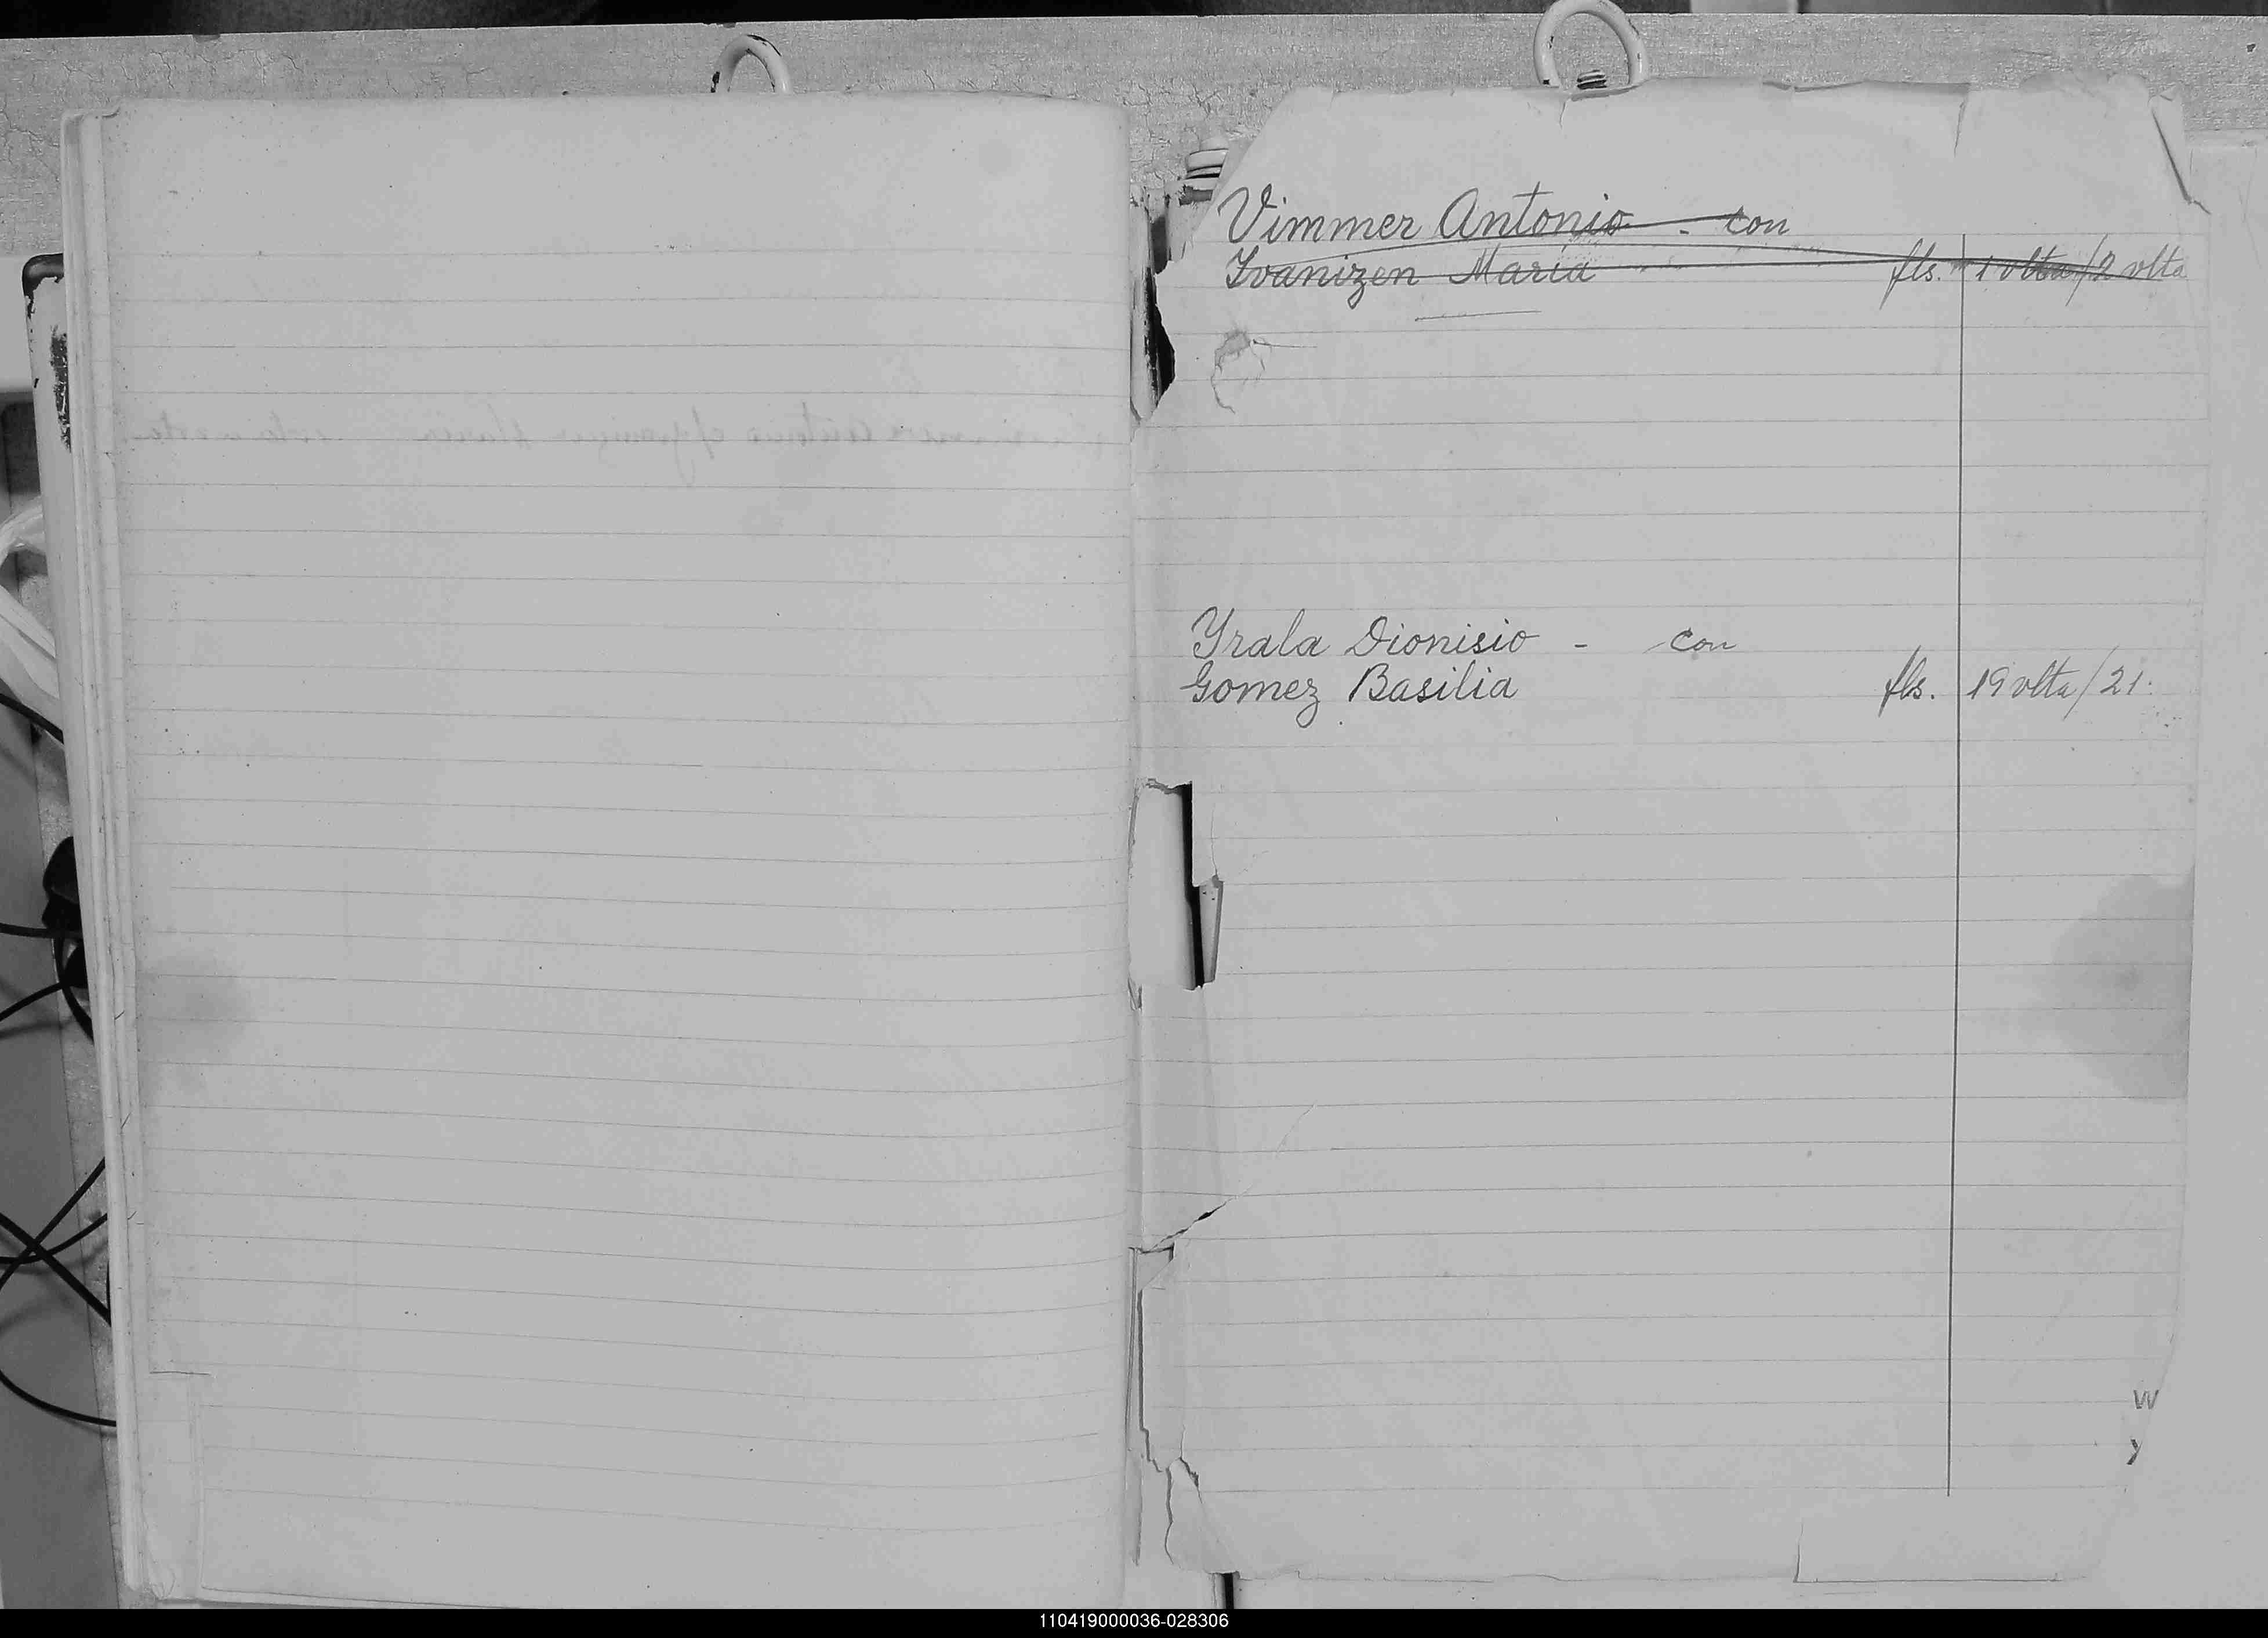 Vimmer Antonio - con
Yvanizen Maria fls. 1 vlta/2 vlta
Yrala Dionisio - con
Gomez Basilia fls. 19 vlta/21.
W
Y
110419000036-028306